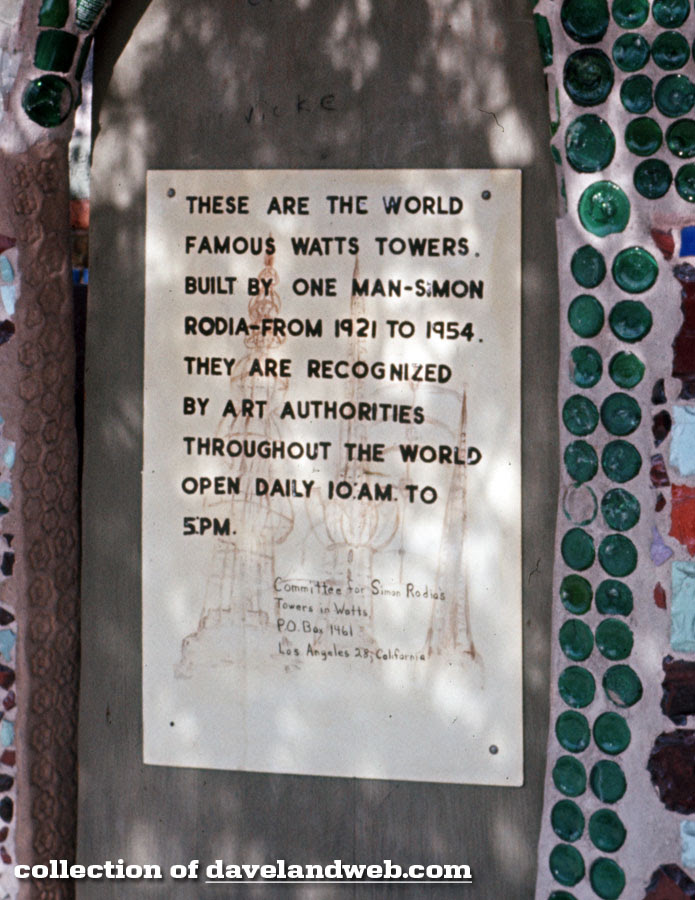 VICKE
THESE ARE THE WORLD
FAMOUS WATTS TOWERS.
BUILT BY ONE MAN-SIMON
RODIA-FROM 1921 TO 1954.
THEY ARE RECOGNIZED
BY ART AUTHORITIES
THROUGHOUT THE WORLD
OPEN DAILY 10 AM. TO
5PM.
Committee for Simon Rodia's
Towers in Watts
P.O. Box 1461
Los Angeles 28, California
collection of davelandweb.com